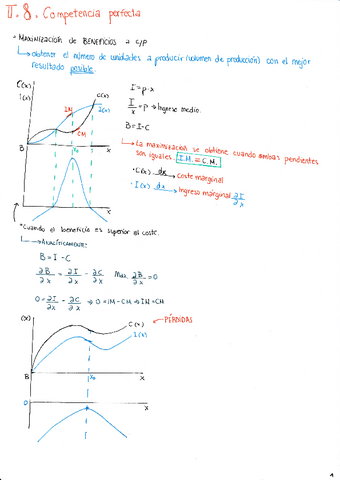 T.8. Competencia perfecta
* MAXIMIZACIÓN DE BENEFICIOS a C/P
↳ obtener el número de unidades a producir (volumen de producción) con el mejor
resultado posible.
C(x)
I(x)
C(x)
I(x)
IM
CM
B
x₀
x
I = p·x
I/x = p → Ingreso medio.
B = I - C
↳ La maximización se obtiene cuando ambas pendientes
son iguales. I.M. = C.M.
· C(x) dx → coste marginal
· I(x) dx → Ingreso marginal ∂I/∂x
* Cuando el beneficio es superior al coste.
↳ ANALÍTICAMENTE:
B = I - C
∂B/∂x = ∂I/∂x - ∂C/∂x Max. ∂B/∂x = 0
0 = ∂I/∂x - ∂C/∂x ⇒ 0 = IM - CM ⇒ IM = CM
(x)
C(x)
I(x)
PÉRDIDAS
B
x₀
x
0
x